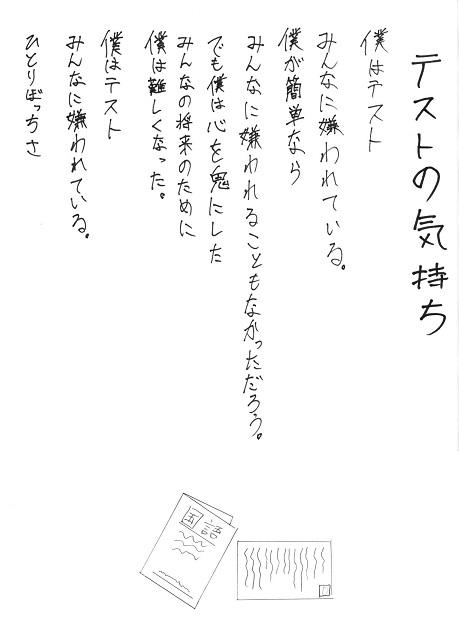 テストの気持ち
僕はテスト
みんなに嫌われている。
僕が簡単なら
みんなに嫌われることもなかっただろう。
でも僕は心を鬼にした
みんなの将来のために
僕は難しくなった。
僕はテスト
みんなに嫌われている。
ひとりぼっちさ
国語